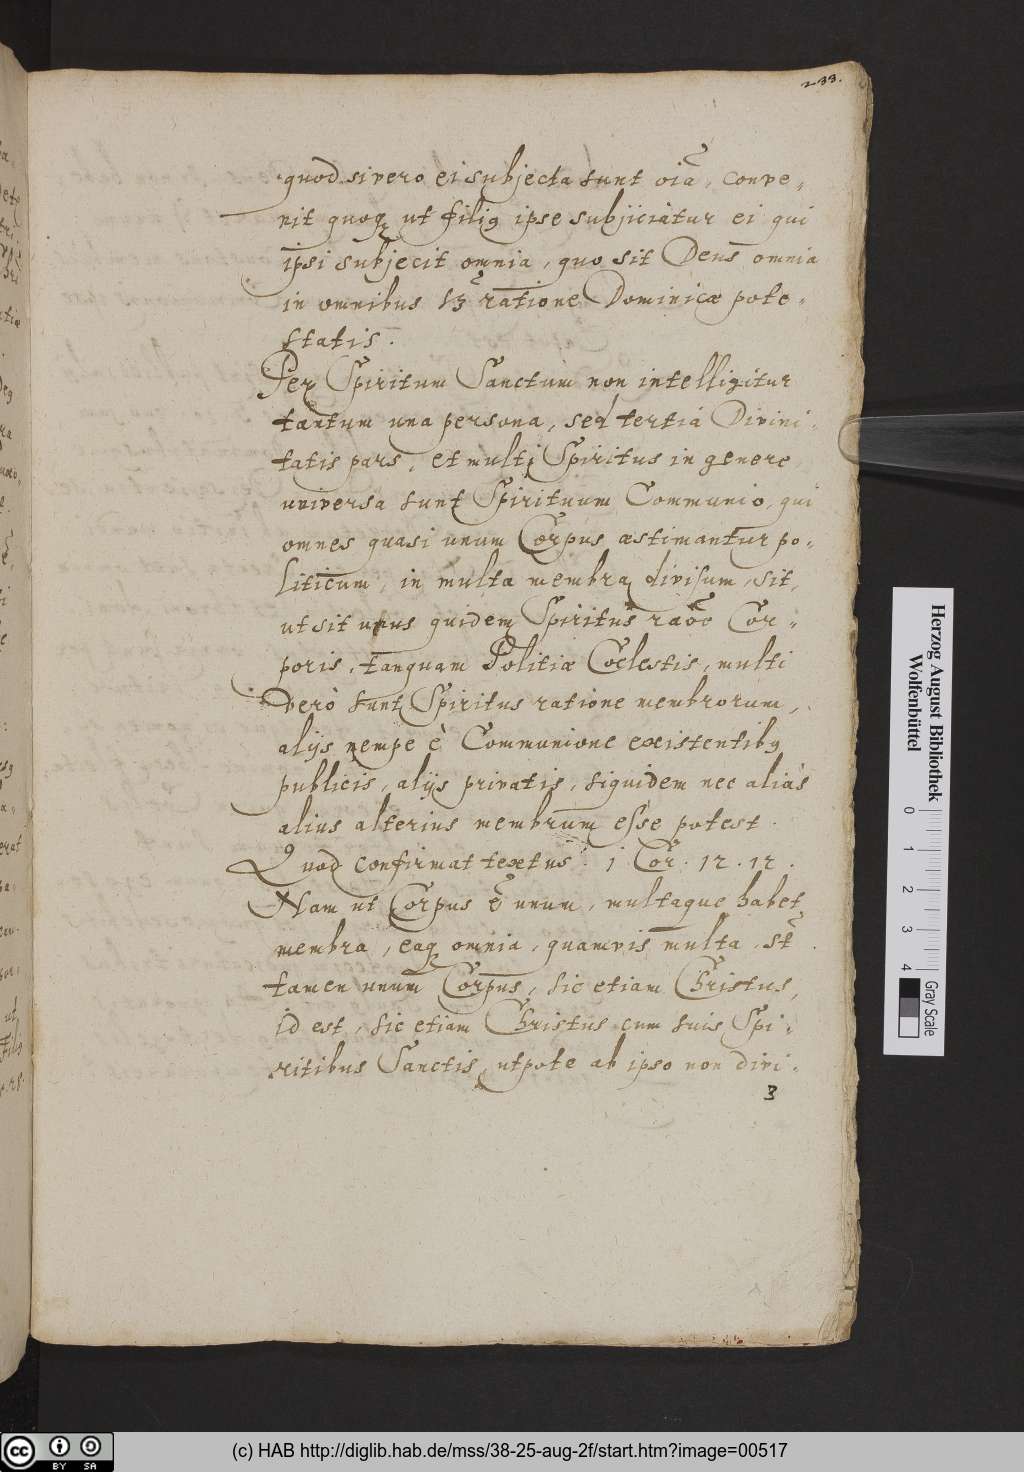 233.
quod si vero ei subjecta sunt oīa, conve-
nit quoqꝫ ut filiꝰ ipse subjiciatur ei qui
ipsi subjecit omnia, quo sit Deus omnia
in omnibus sꝫ ratione Dominicæ pote-
statis.
Per Spiritum Sanctum non intelligitur
tantum una persona, sed tertia Divini-
tatis pars, et multi Spiritus in genere
universa sunt Spirituum Communio, qui
omnes quasi unum Corpus æstimantur po-
liticum, in multa membra divisum, sit,
ut sit unus quidem Spiritus raōe Cor-
poris, tanquam Politiæ Coelestis, multi
verò sunt Spiritus ratione membrorum,
alijs nempe è Communione existentibꝰ
publicis, alijs privatis, siquidem nec aliàs
alius alterius membrum esse potest.
Quod confirmat textus: 1 Cor. 12. 12.
Nam ut Corpus ē unum, multaque habet
membra, eaqꝫ omnia, quamvis multa, st̄
tamen unum Corpus, sic etiam Christus,
id est, sic etiam Christus cum suis Spi-
ritibus Sanctis, utpote ab ipso non divi-
3
Herzog August Bibliothek
Wolfenbüttel
0 1 2 3 4
Gray Scale
(c) HAB http://diglib.hab.de/mss/38-25-aug-2f/start.htm?image=00517
cc BY SA